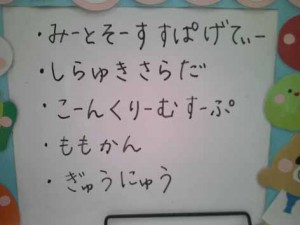 ・みーとそーすすぱげてぃー
・しらゆきさらだ
・こーんくりーむすーぷ
・ももかん
・ぎゅうにゅう